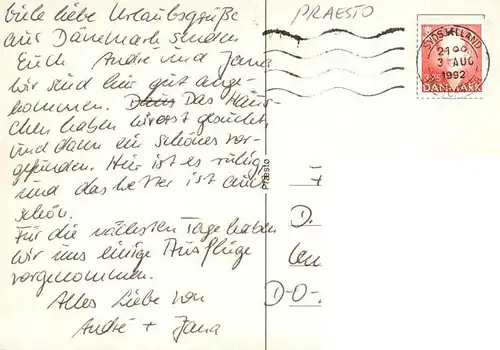 Viele liebe Urlaubsgrüße
aus Dänemark senden
Euch André und Jana
Wir sind hier gut ange-
kommen. Das Häus-
chen haben wir erst gesucht,
und dann ein schönes vor-
gefunden. Hier ist es ruhig
und das Wetter ist auch
schön.
Für die nächsten Tage haben
wir uns einige Ausflüge
vorgenommen.
Alles Liebe von
André + Jana
Præstø
PRAESTO
SYDSJÆLLAND
3 AUG
1992
DANMARK
D.
D-O-